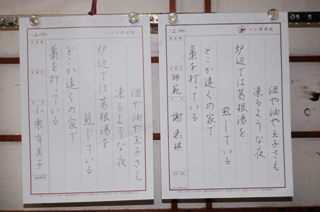 酒や油や玉子さえ
凍るような夜
炉辺では葛根湯を
煎じている
どこか遠くの家で
藁を打っている
師範
酒や油や玉子さえ
凍るような夜
炉辺では葛根湯を
煎じている
どこか遠くの家で
藁を打っている